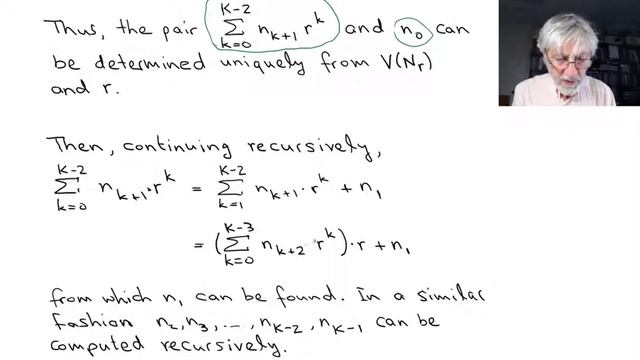 Thus, the pair ∑_{k=0}^{K-2} n_{k+1} r^k and n_0 can
be determined uniquely from V(N_r)
and r.
Then, continuing recursively,
∑_{k=0}^{K-2} n_{k+1}·r^k = ∑_{k=1}^{K-2} n_{k+1}·r^k + n_1
= (∑_{k=0}^{K-3} n_{k+2} r^k)·r + n_1
from which n_1 can be found. In a similar
fashion n_2, n_3, ..., n_{K-2}, n_{K-1} can be
computed recursively.